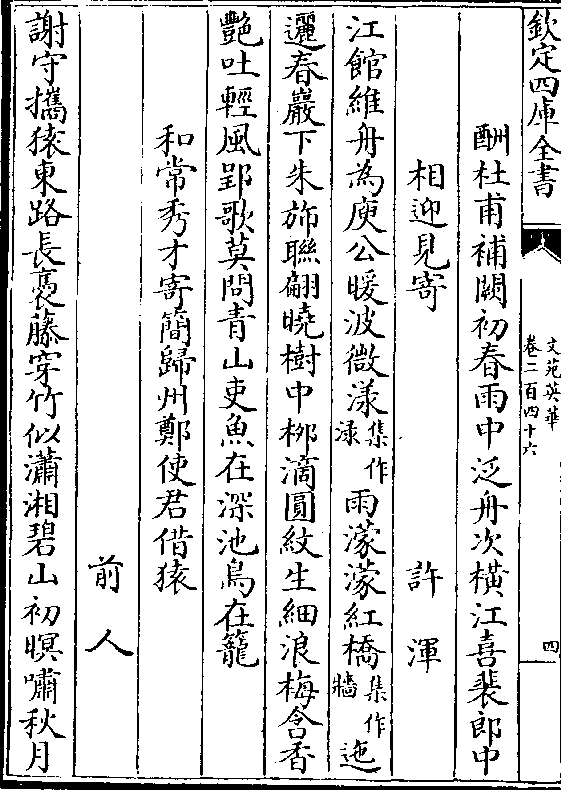 欽定四庫全書
文苑英華
卷二百四十六
四
酬杜甫補闕初春雨中泛舟次橫江喜裴郎中
相迎見寄
許渾
江館維舟為庾公暖波微漾集作渌雨濛濛紅橋集作牆迤
邐春巖下朱斾聯翩曉樹中栁滴圓紋生細浪梅含香
艷吐輕風郢歌莫問青山吏魚在深池鳥在籠
和常秀才寄簡歸州鄭使君借猿
前人
謝守攜猿東路長裊藤穿竹似瀟湘碧山初暝嘯秋月